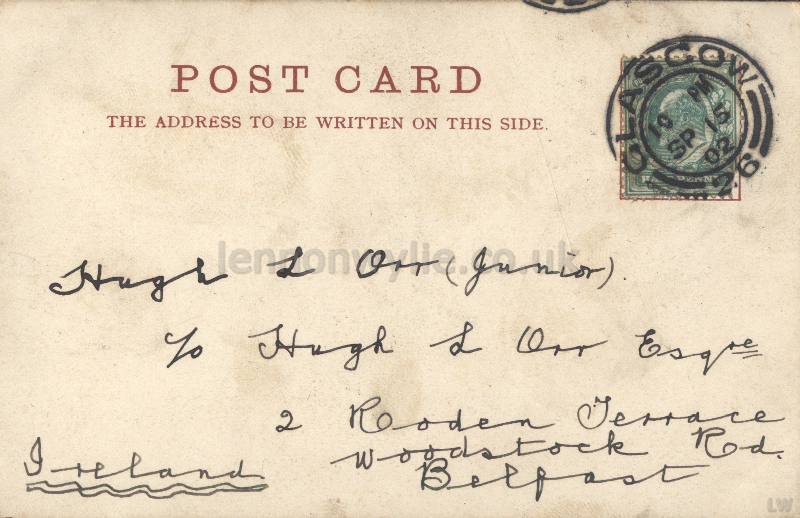 POST CARD
THE ADDRESS TO BE WRITTEN ON THIS SIDE.
GLASGOW
PM
SP 15
02
26
lennonwylie.co.uk
Hugh L Orr (Junior)
c/o Hugh L Orr Esqre
2 Roden Terrace
Woodstock Rd.
Belfast
Ireland
LW